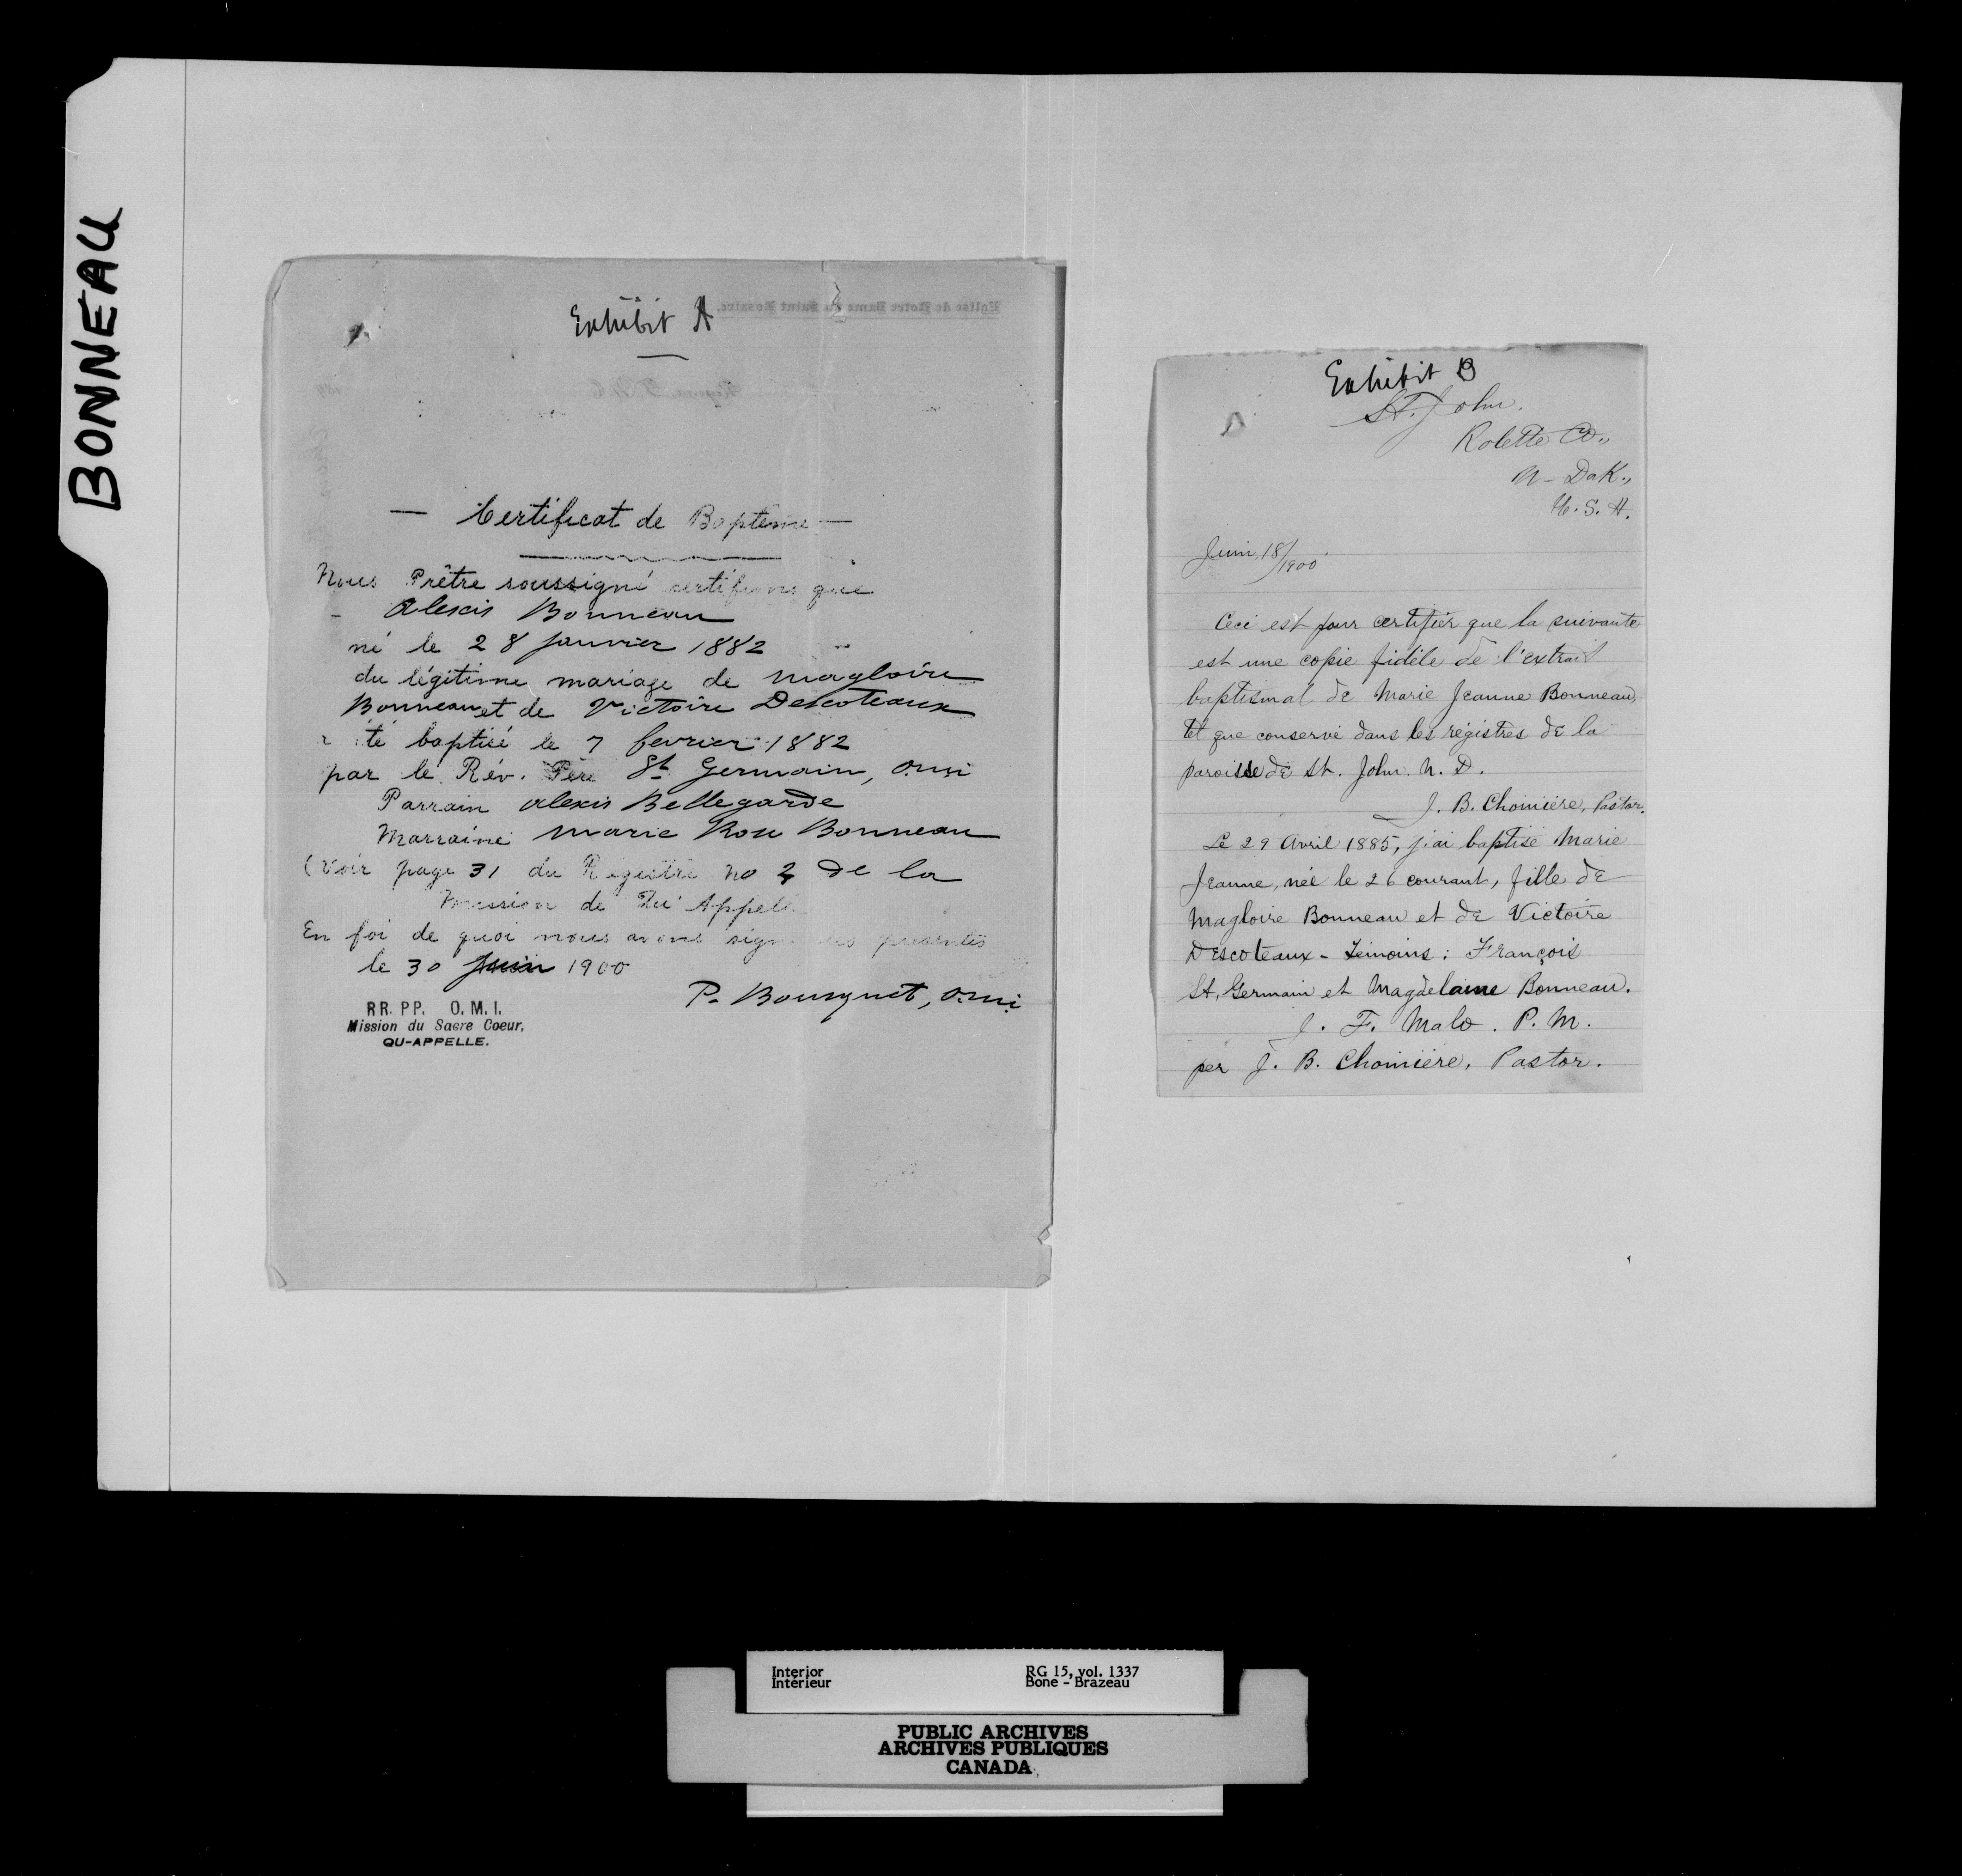 BONNEAU
Exhibit A
Eglise de Notre Dame du Saint Rosaire.
— Certificat de Bapteme —
Nous Prêtre soussigné certifions que
- Alexis Bonneau
né le 28 janvier 1882
du légitime mariage de Magloire
Bonneau et de Victoire Descoteaux
a été baptisé le 7 fevrier 1882
par le Rév. Père St Germain, o.m.i
Parrain Alexis Bellegarde
Marraine Marie Rose Bonneau
(Voir page 31 du Registre no 2 de la
Mission de Qu'Appelle
En foi de quoi nous avons signé les présentes
le 30 Juin 1900
P. Bousquet, o.m.i
RR. PP. O. M. I.
Mission du Sacre Coeur,
QU-APPELLE.
Exhibit B
St. John.
Rolette Co.,
N- Dak.,
U. S. A.
Juin, 18/1900.
Ceci est pour certifier que la suivante
est une copie fidèle de l'extrait
baptismal de Marie Jeanne Bonneau,
tel que conservé dans les régistres de la
paroisse de St. John. N. D.
J. B. Chomière, Pastor.
Le 29 Avril 1885, j'ai baptisé Marie
Jeanne, née le 26 courant, fille de
Magloire Bonneau et de Victoire
Descoteaux - Témoins: François
St. Germain et Magdelaine Bonneau.
J. F. Malo. P. M.
per J. B. Chomière, Pastor.
Interior
Intérieur
RG 15, vol. 1337
Bone - Brazeau
PUBLIC ARCHIVES
ARCHIVES PUBLIQUES
CANADA